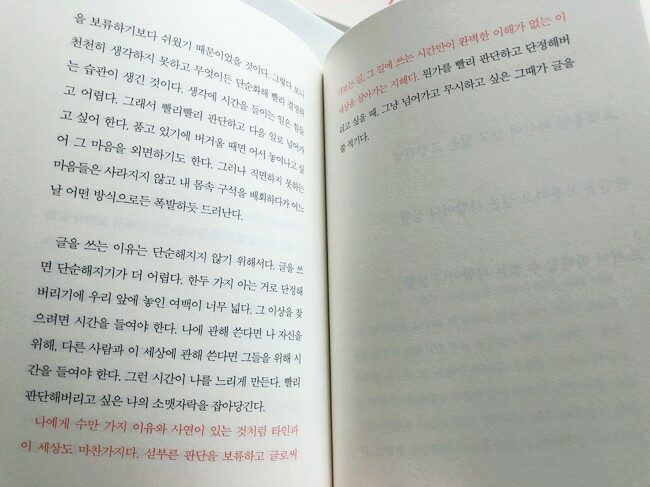 을 보류하기보다 쉬웠기 때문이었을 것이다. 그렇다 보니
천천히 생각하지 못하고 무엇이든 단순화해 빨리 결정하
는 습관이 생긴 것이다. 생각에 시간을 들이는 일은 힘들
고 어렵다. 그래서 빨리빨리 판단하고 다음 일로 넘어가
고 싶어 한다. 품고 있기에 버거울 때면 어서 놓여나고 싶
어 그 마음을 외면하기도 한다. 그러나 직면하지 못하는
마음들은 사라지지 않고 내 몸속 구석을 배회하다가 어느
날 어떤 방식으로든 폭발하듯 드러난다.
글을 쓰는 이유는 단순해지지 않기 위해서다. 글을 쓰
면 단순해지기가 더 어렵다. 한두 가지 아는 거로 단정해
버리기에 우리 앞에 놓인 여백이 너무 넓다. 그 이상을 찾
으려면 시간을 들여야 한다. 나에 관해 쓴다면 나 자신을
위해, 다른 사람과 이 세상에 관해 쓴다면 그들을 위해 시
간을 들여야 한다. 그런 시간이 나를 느리게 만든다. 빨리
판단해버리고 싶은 나의 소맷자락을 잡아당긴다.
나에게 수만 가지 이유와 사연이 있는 것처럼 타인과
이 세상도 마찬가지다. 섣부른 판단을 보류하고 글로써
보는 길, 그 길에 쓰는 시간만이 완벽한 이해가 없는 이
세상을 살아가는 지혜다. 뭔가를 빨리 판단하고 단정해버
리고 싶을 때, 그냥 넘어가고 무시하고 싶은 그때가 글을
쓸 적기다.